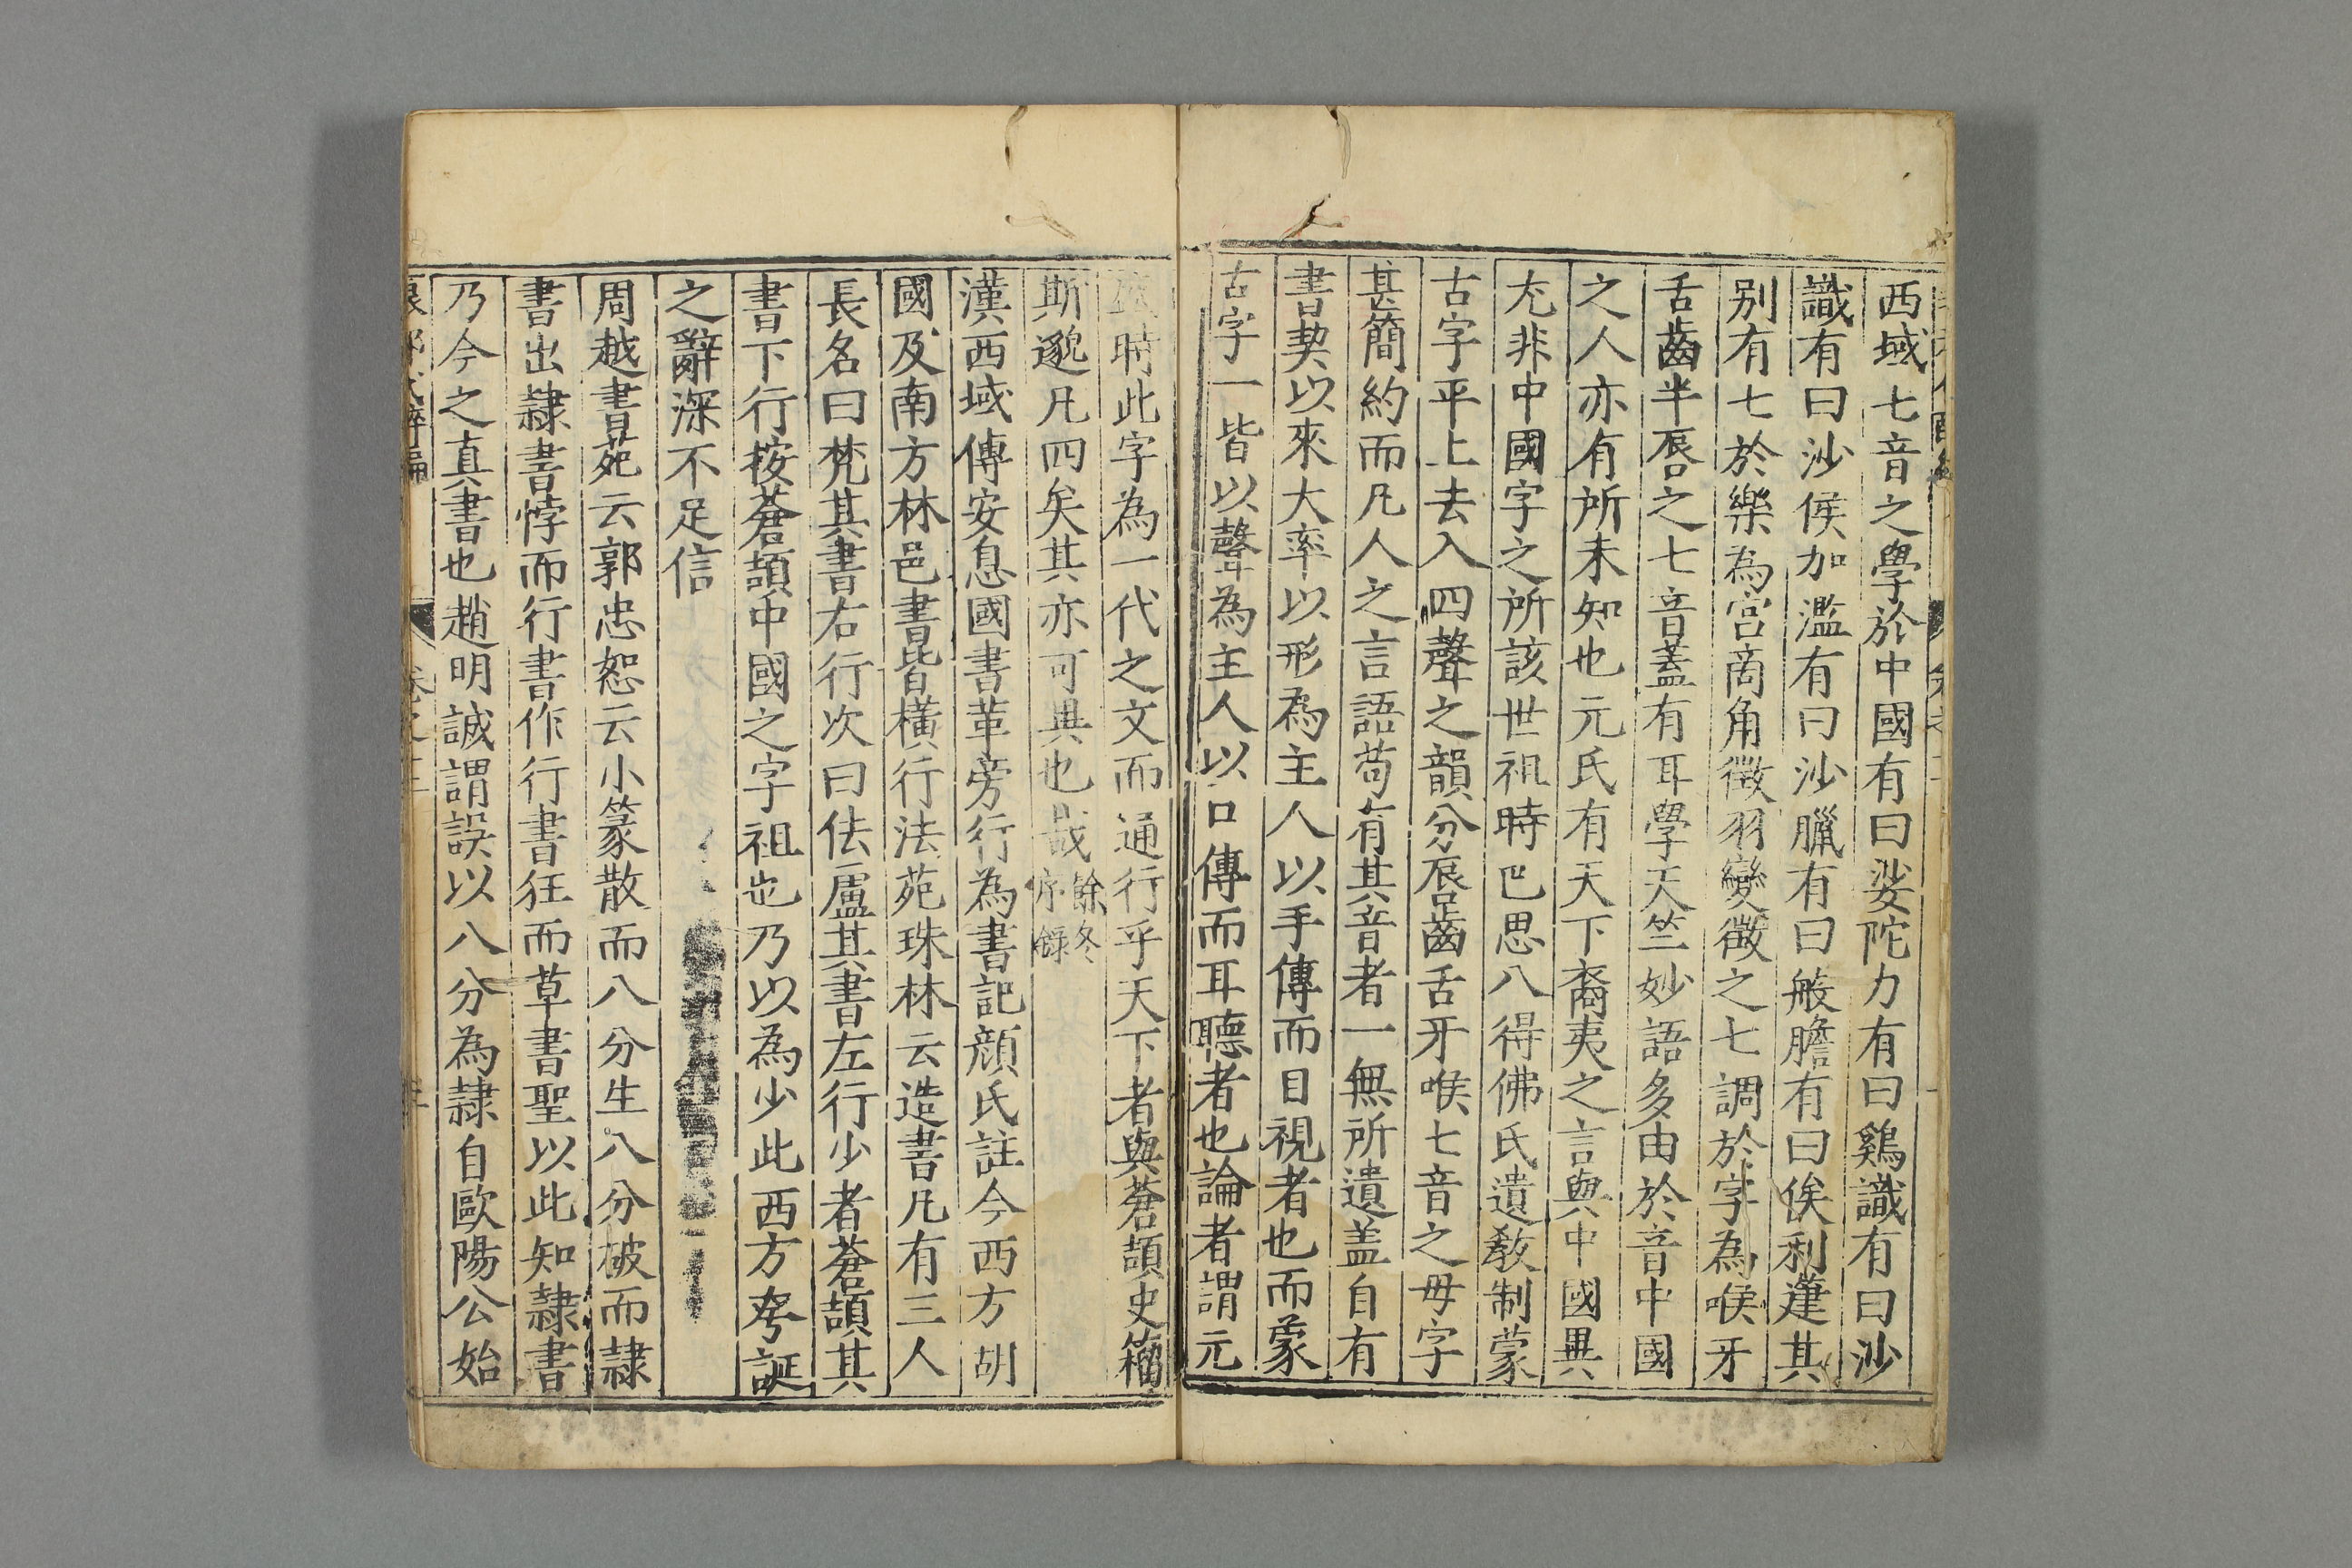 西域七音之學於中國有曰娑陀力有曰鷄識有曰沙
識有曰沙侯加濫有曰沙臘有曰般膽有曰俟利䔖其
别有七於樂為宫啇角徵羽變徵之七調於字為喉牙
舌齒半唇之七音蓋有耳學天竺妙語多由於音中國
之人亦有所未知也元氏有天下裔夷之言與中國異
尢非中國字之所該世祖時巴思八得佛氏遺敎制蒙
古字平上去入四聲之韻分唇齒舌牙喉七音之毋字
甚簡約而凡人之言語苟有其音者一無所遺盖自有
書契以來大率以形為主人以手傳而目視者也而蒙
古字一皆以聲為主人以口傳而耳聽者也論者謂元
時此字為一代之文而通行乎天下者與蒼頡史籀
斯邈凡四矣其亦可異也哉餘冬序錄
漢西域傳安息國書革旁行為書記顔氏註今西方胡
國及南方林邑書皆橫行法苑珠林云造書凡有三人
長名曰梵其書右行次曰佉盧其書左行少者蒼頡其
書下行按蒼頡中國之字祖也乃以為少此西方夸誕
之辭深不足信
周越書苑云郭忠恕云小篆散而八分生八分破而隷
書出隷書悖而行書作行書狂而草書聖以此知隷書
乃今之真書也趙明誠謂誤以八分為隷自歐陽公始